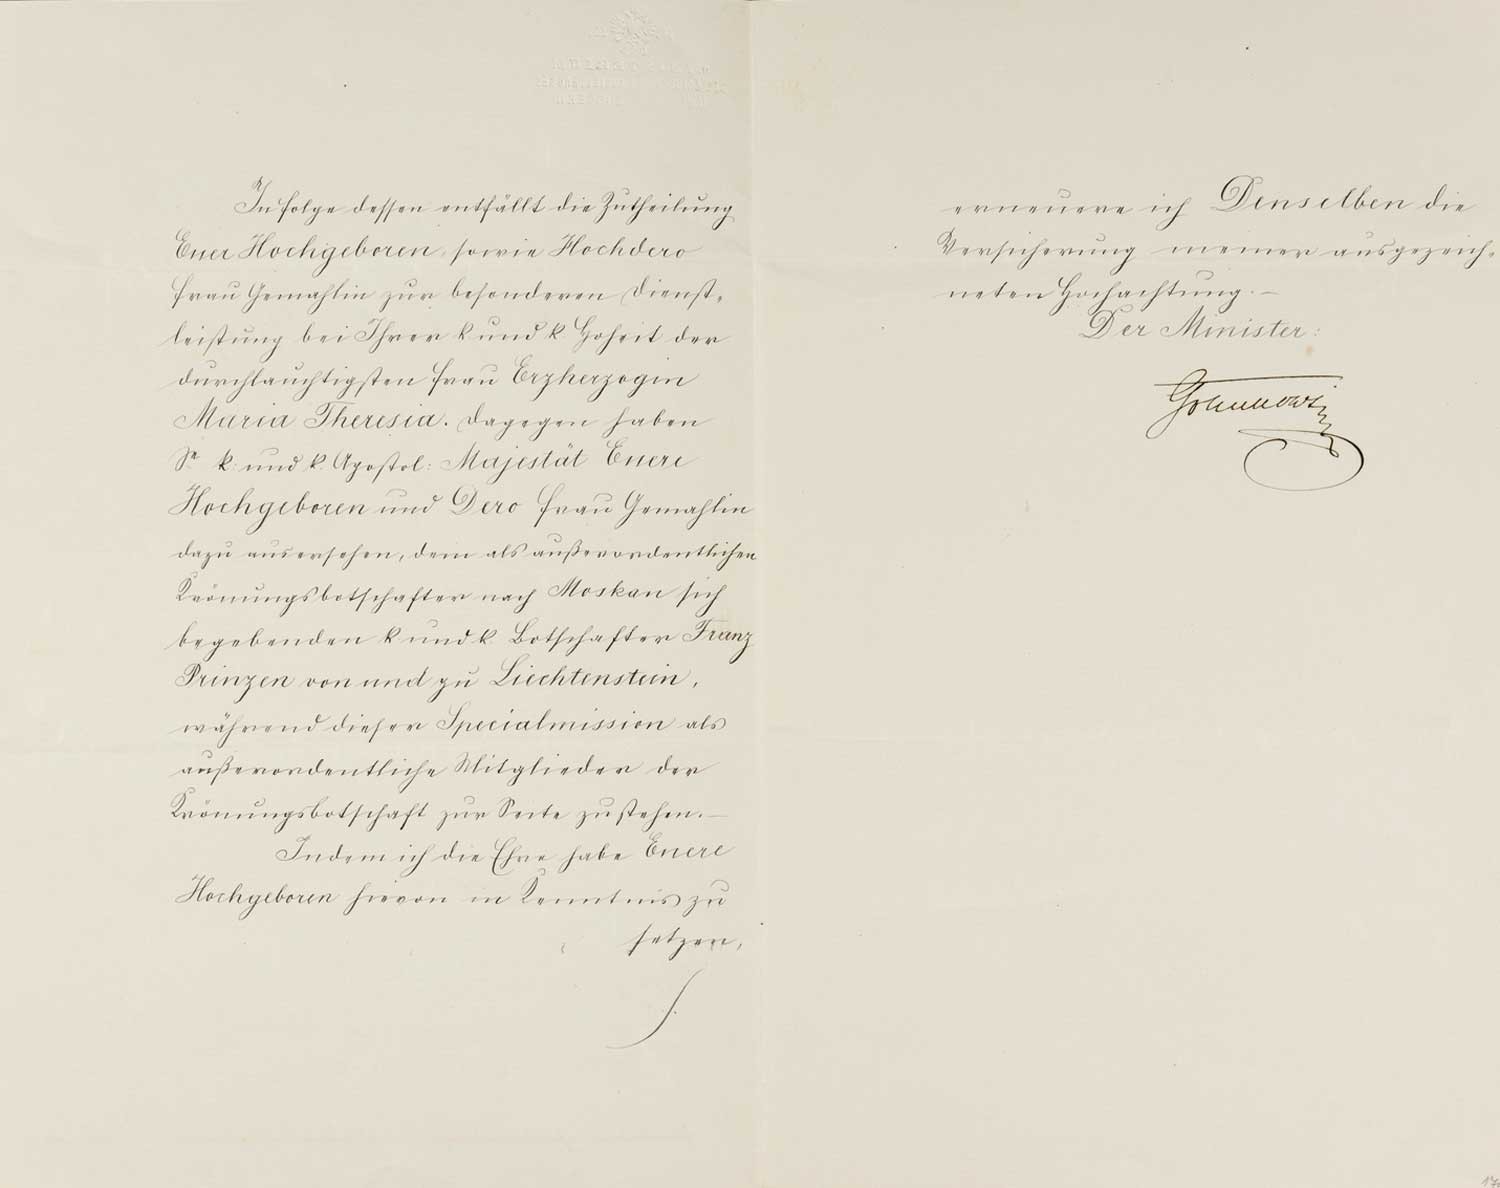 In Folge dessen entfällt die Zutheilung
Euer Hochgeboren, sowie Hochdero
Frau Gemahlin zur besonderen Dienst-
leistung bei Ihrer k und k. Hoheit der
durchlauchtigsten Frau Erzherzogin
Maria Theresia. Dagegen haben
Se k: und k. Apostol: Majestät Euere
Hochgeboren und Dero Frau Gemahlin
dazu ausersehen, dem als außerordentlichen
Krönungsbotschafter nach Moskau sich
begebenden k und k. Botschafter Franz
Prinzen von und zu Liechtenstein,
während dieser Specialmission als
außerordentliche Mitglieder der
Krönungsbotschaft zur Seite zu stehen.—
Indem ich die Ehre habe Euere
Hochgeboren hievon in Kenntnis zu
setzen,
erneuere ich Denselben die
Versicherung meiner ausgezeich-
neten Hochachtung.—
Der Minister:
Goluchowski